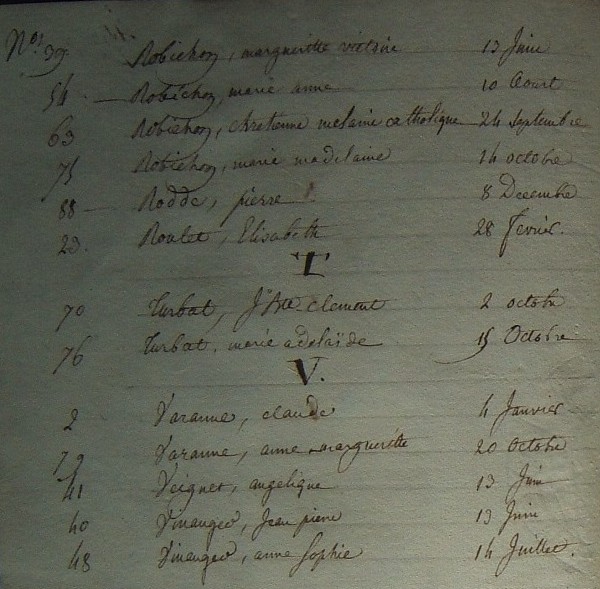 Nos. 39. Robichon, margueritte victoire 13 Juin
54 - Robichon, marie anne 10 Aoust
63 Robichon, chretienne melanie catholique 24 septembre
75 Robichon, marie madelaine 14 octobre
88 - Rodde, pierre 8 Decembre
23. Roulet, Elisabeth 28 fevrier.
T
70 Turbat, Jn Bte clement 2 octobre
76 Turbat, marie adelaïde 15 Octobre
V.
2 Varanne, claude 4 Janvier
79 Varanne, anne margueritte 20 Octobre
41 Veignet, angelique 13 Juin
40 Jean pierre 13 Juin
48 anne Sophie 14 Juillet.